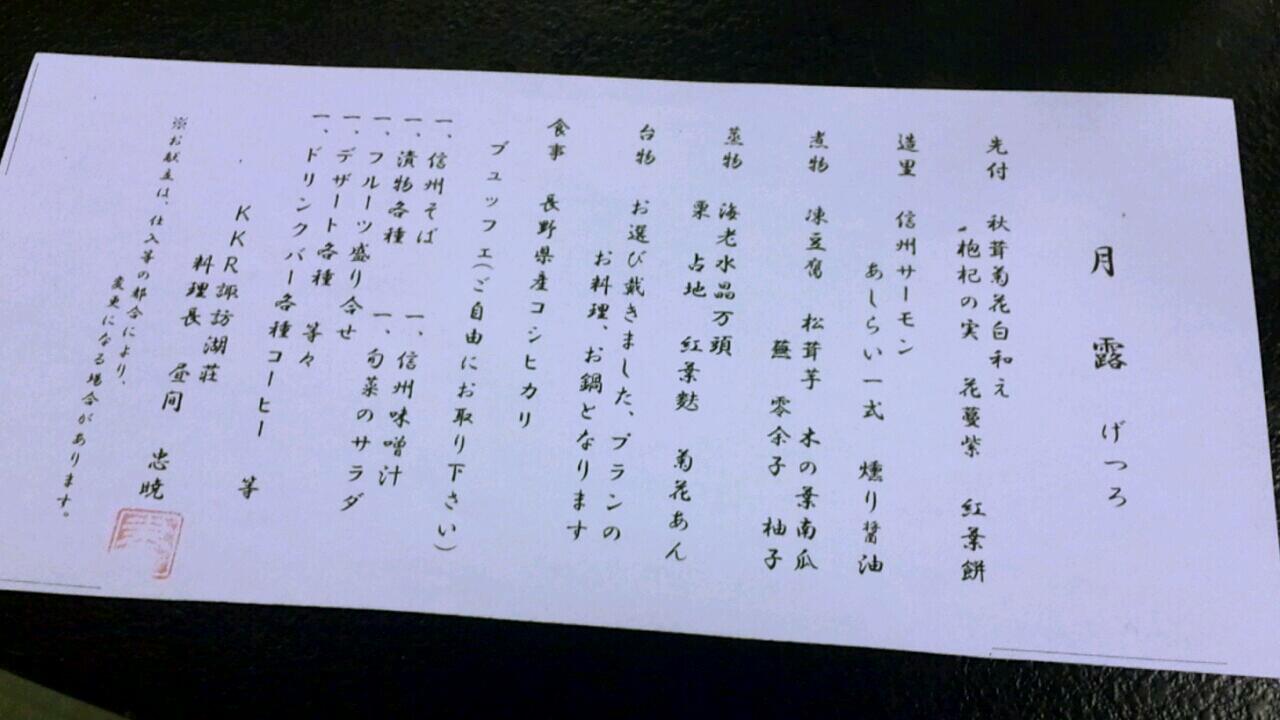 月 露 げつろ
先付 秋茸菊花白和え
枸杞の実 花蔓紫 紅葉餅
造里 信州サーモン
あしらい一式 燻り醤油
煮物 凍豆腐 松茸芋 木の葉南瓜
蕪 零余子 柚子
蒸物 海老水晶万頭
栗 占地 紅葉麩 菊花あん
台物 お選び戴きました、プランの
お料理、お鍋となります
食事 長野県産コシヒカリ
ブュッフェ(ご自由にお取り下さい)
一、信州そば 一、信州味噌汁
一、漬物各種 一、旬菜のサラダ
一、フルーツ盛り合せ
一、デザート各種 等々
一、ドリンクバー各種コーヒー 等
KKR諏訪湖荘
料理長 昼間 忠暁
※お献立は、仕入等の都合により、
変更になる場合があります。